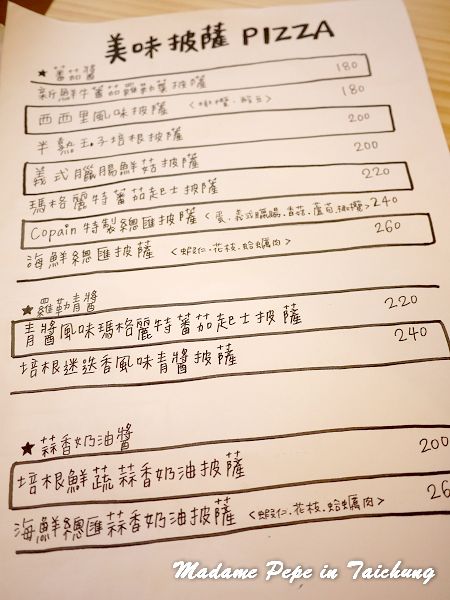 美味披薩 PIZZA
★ 蕃茄醬
新鮮牛蕃茄羅勒葉披薩 180
西西里風味披薩 <橄欖.酸豆> 180
半熟玉子培根披薩 200
義式臘腸鮮菇披薩 200
瑪格麗特蕃茄起士披薩 220
Copain特製總匯披薩 <蛋.義式臘腸.香菇.蘆筍.橄欖> 240
海鮮總匯披薩 <蝦仁.花枝.蛤蠣肉> 260
★ 羅勒青醬
青醬風味瑪格麗特蕃茄起士披薩 220
培根迷迭香風味青醬披薩 240
★ 蒜香奶油醬
培根鮮蔬蒜香奶油披薩 200
海鮮總匯蒜香奶油披薩 <蝦仁.花枝.蛤蠣肉> 26
Madame Pepe in Taichung